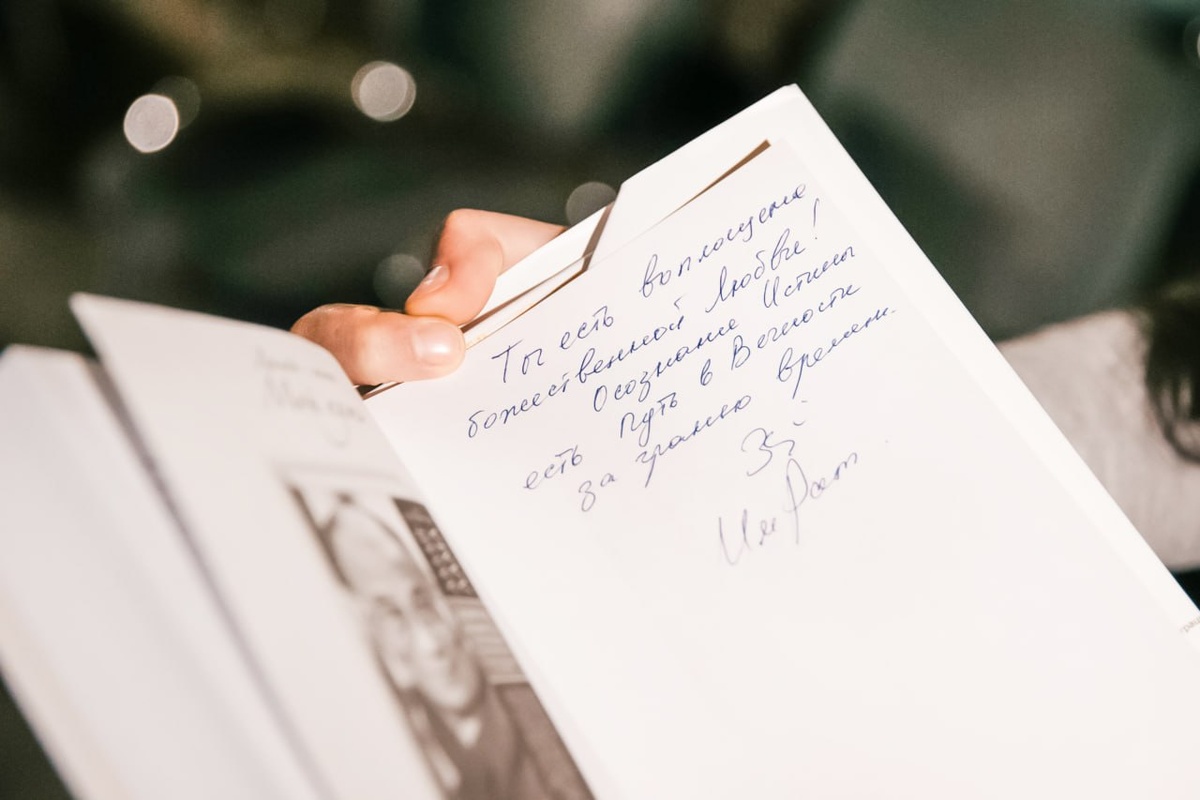 Ты есть воплощение
божественной Любви!
Осознание Истины
есть путь в Вечности
за гранью времени.